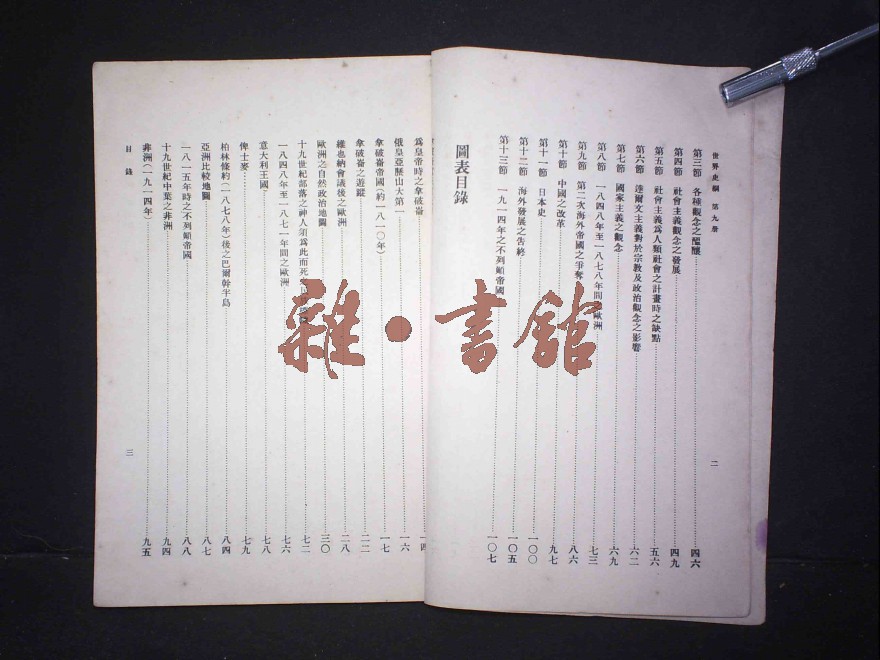 世界史綱 第九册
二
第三節 各種觀念之醞釀 四六
第四節 社會主義觀念之發展 四九
第五節 社會主義爲人類社會之計畫時之缺點 五六
第六節 達爾文主義對於宗教及政治觀念之影響 六二
第七節 國家主義之觀念 六九
第八節 一八四八年至一八七八年間歐洲 七三
第九節 第二次海外帝國之爭奪 八六
第十節 中國之改革 九七
第十一節 日本史 一〇〇
第十二節 海外發展之告終 一〇五
第十三節 一九一四年之不列顚帝國 一〇七
圖表目錄
爲皇帝時之拿破崙 一四
俄皇亞歷山大第一 一六
拿破崙帝國(約一八一〇年) 一七
拿破崙之遊蹤 二二
維也納會議後之歐洲 二八
歐洲之自然政治地圖 三〇
十九世紀部落之神人須爲此而死 七二
一八四八年至一八七一年間之歐洲 七六
意大利王國 七八
俾士麥 七九
柏林條約(一八七八年)後之巴爾幹半島 八四
亞洲比較地圖 八七
一八一五年時之不列顚帝國 八八
十九世紀中葉之非洲 九四
非洲(一九一四年) 九五
目錄
三
雜·書館